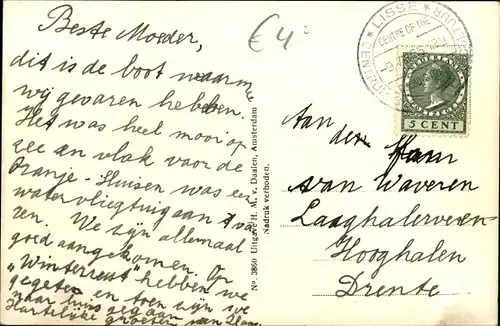 Beste Moeder,
dit is de boot waarmee
wij gevaren hebben.
Het was heel mooi op
zee en vlak voor de
Oranje-Sluisen was een
watervliegtuig aan 't va
ren. We zijn allemaal
goed aangekomen. Op
„Winterrust” hebben we
gegeten en toen zijn we
naar huis gegaan
Hartelijke groeten van
€4
Nº. 3860 Uitgave H. M. v. Daalen, Amsterdam
Nadruk verboden.
LISSE
CENTRE OF THE
NEDERLAND
5 CENT
Aan den Heer
van Waveren
Laaghalerveen
Hooghalen
Drente